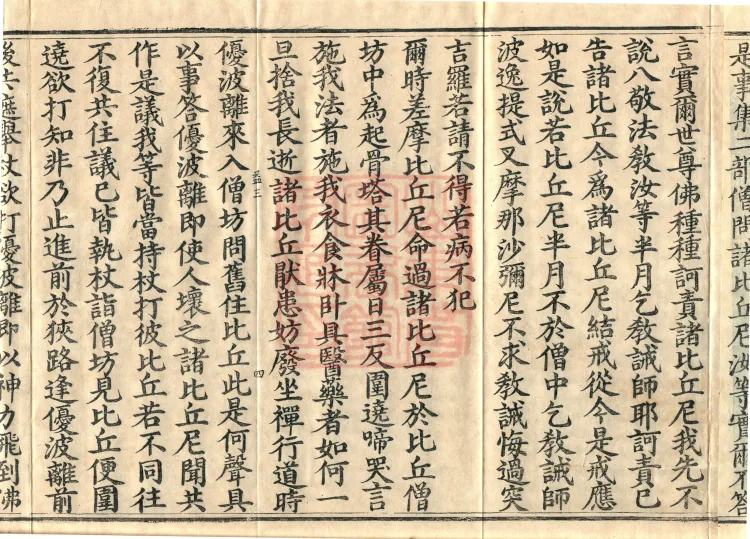 是事集二部僧問諸比丘尼汝等實爾不答
言實爾世尊佛種種訶責諸比丘尼我先不
說八敬法教汝等半月乞教誡師耶訶責已
告諸比丘今為諸比丘尼結戒從今是戒應
如是說若比丘尼半月不於僧中乞教誡師
波逸提式叉摩那沙彌尼不求教誡悔過突
吉羅若請不得若病不犯
爾時差摩比丘尼命過諸比丘尼於比丘僧
坊中為起骨塔其眷屬日三反圍遶啼哭言
施我法者施我衣食牀卧具醫藥者如何一
旦捨我長逝諸比丘猒患妨廢坐禪行道時
益三
四
優波離來入僧坊問舊住比丘此是何聲具
以事答優波離即使人壞之諸比丘尼聞共
作是議我等皆當持杖打彼比丘若不同往
不復共住議已皆執杖詣僧坊見比丘便圍
遶欲打知非乃止進前於狹路逢優波離前
後共遮舉杖欲打優波離即以神力飛到佛